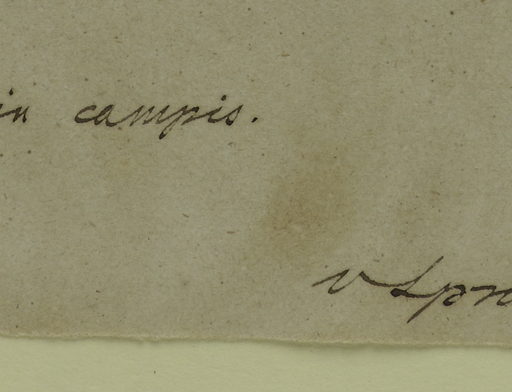 in campis.
v Spr